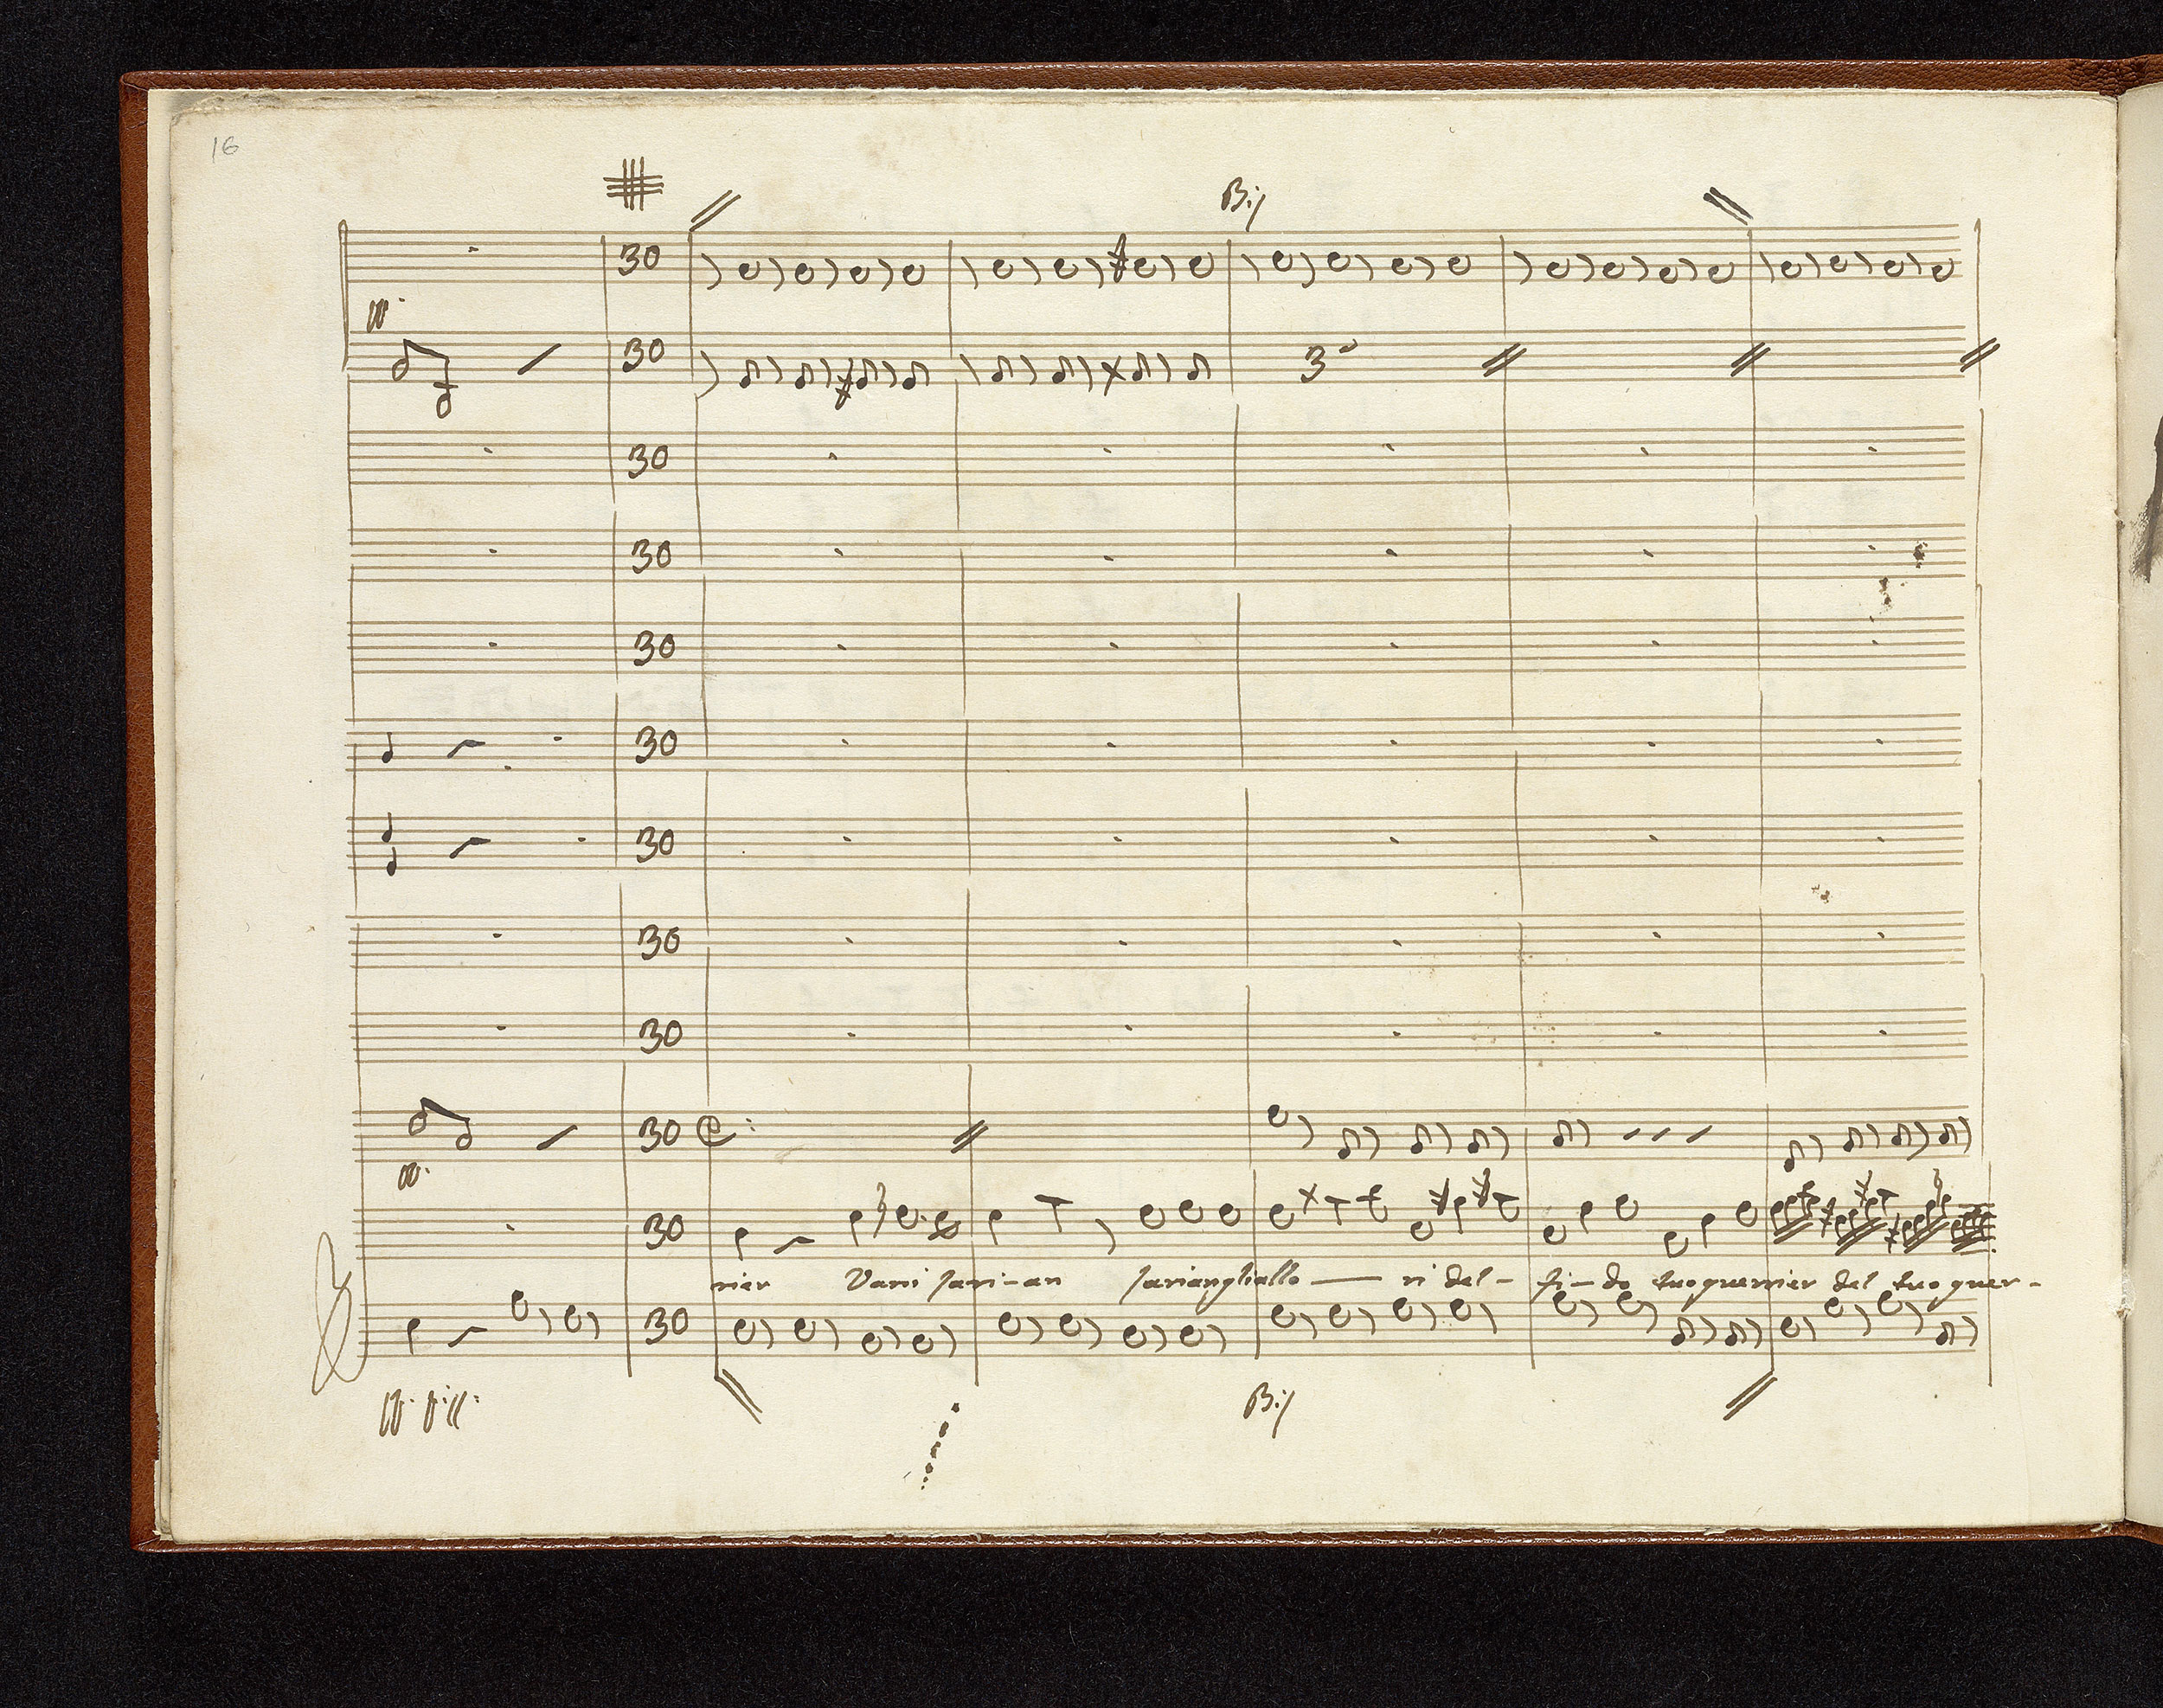 16
Bis
30
30
3ª
30
30
30
30
30
30
30
30
30
nier Vani sari-an sariangliallo — ri del- fi-do tuo guerrier del tuo guer-
30
Bis